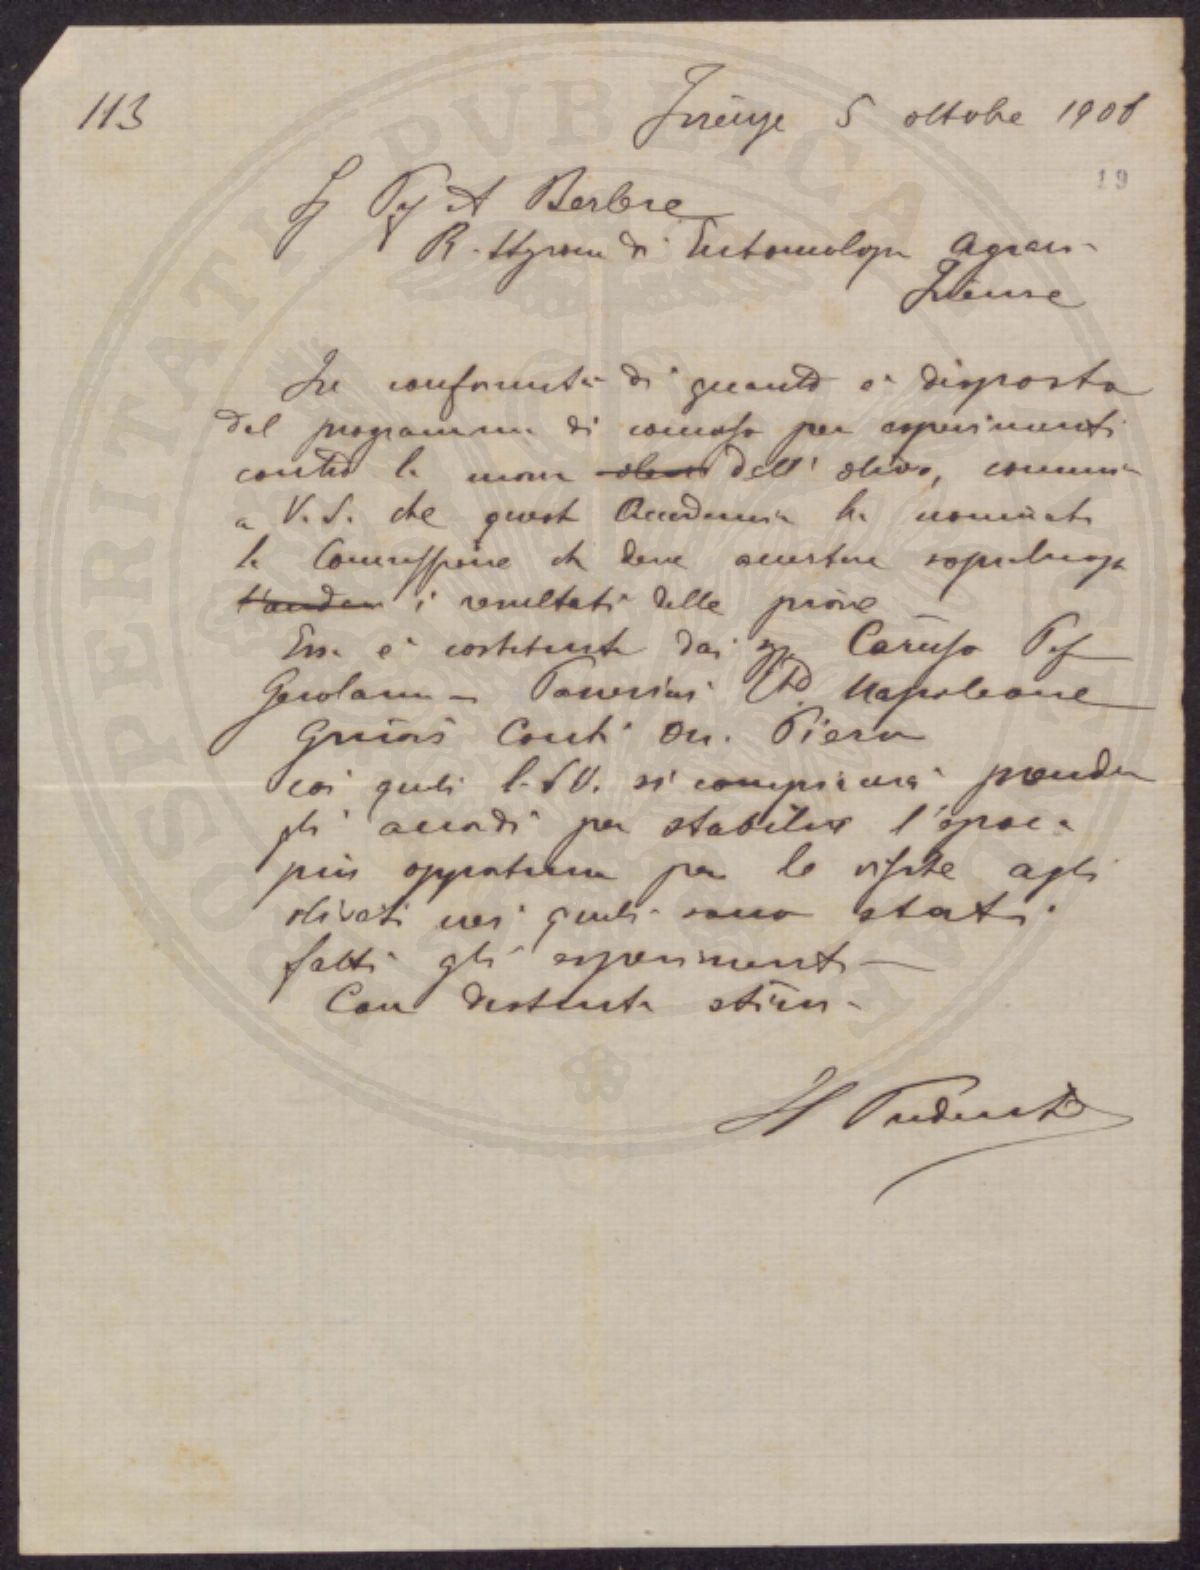 113
Firenze 5 ottobre 1908
19
Sg Prof A Berlese
R. Stazione di Entomologia Agraria
Firenze
In conformità di quanto è disposto
dal programma di concorso per esperimenti
contro la mosca dell'olivo, comunico
a V.S. che questa Accademia ha nominato
la Commissione che deve accertare sopraluogo
i resultati delle prove
Essa è costituita dai sigg. Caruso Prof
Gerolamo - Passerini Napoleone
Guicciardini Conti On. Piero
coi quali la S.V. si compiacerà prender
gli accordi per stabilire l'epoca
più opportuna per le visite agli
oliveti nei quali sono stati
fatti gli esperimenti -
Con distinta stima
Il Presidente
PROSPERITATI PUBLICAE AUGENDAE